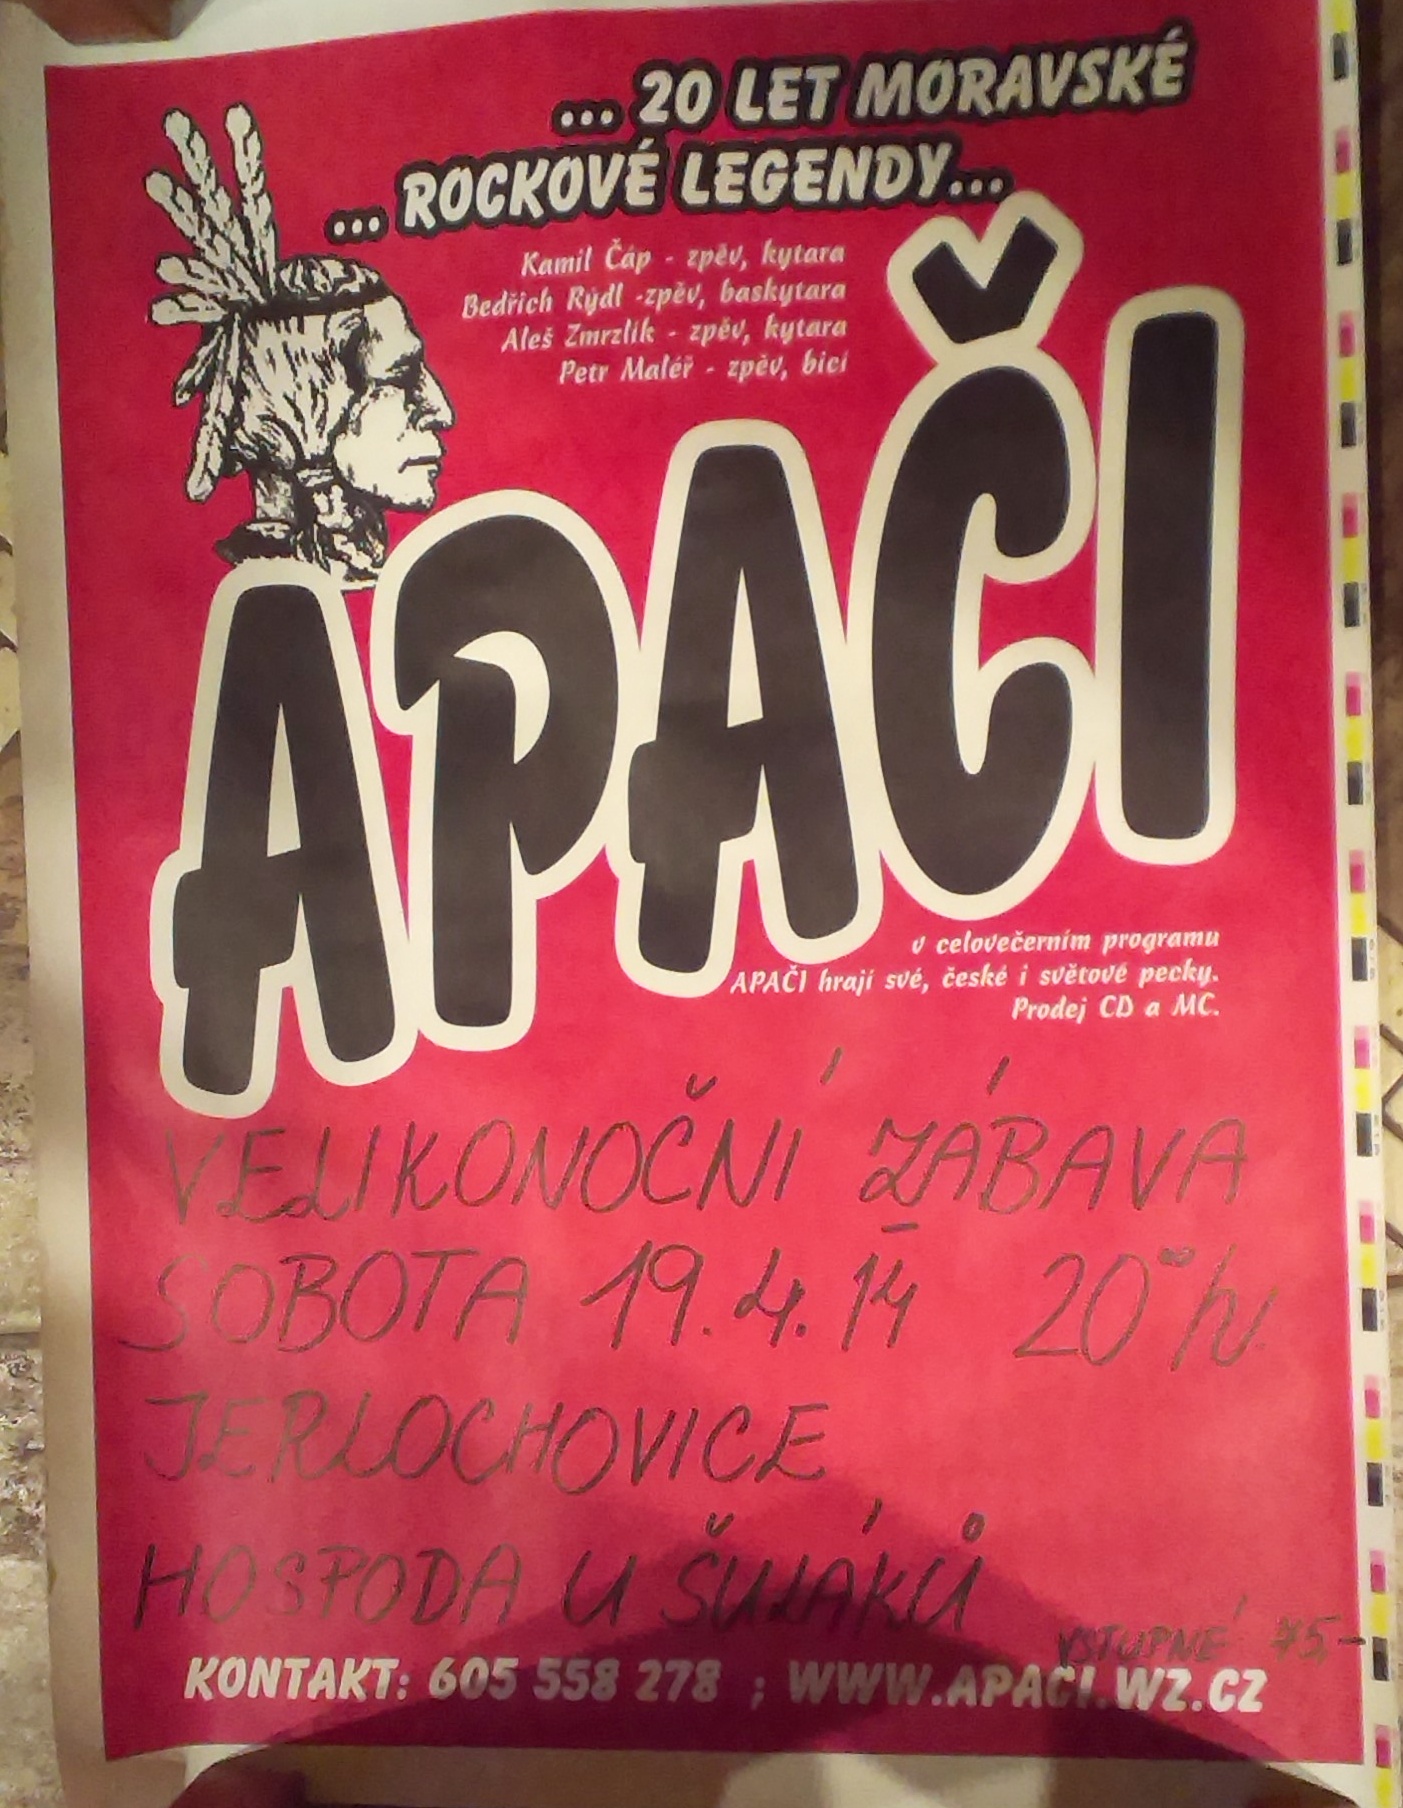 ... 20 LET MORAVSKÉ
... ROCKOVÉ LEGENDY...
Kamil Čáp - zpěv, kytara
Bedřich Rýdl -zpěv, baskytara
Aleš Zmrzlík - zpěv, kytara
Petr Maléř - zpěv, bicí
APAČI
v celovečerním programu
APAČI hrají své, české i světové pecky.
Prodej CD a MC.
VELIKONOČNÍ ZÁBAVA
SOBOTA 19.4.14 20⁰⁰ h.
JERLOCHOVICE
HOSPODA U ŠULÁKŮ
VSTUPNÉ 75,-
KONTAKT: 605 558 278 ; WWW.APACI.WZ.CZ